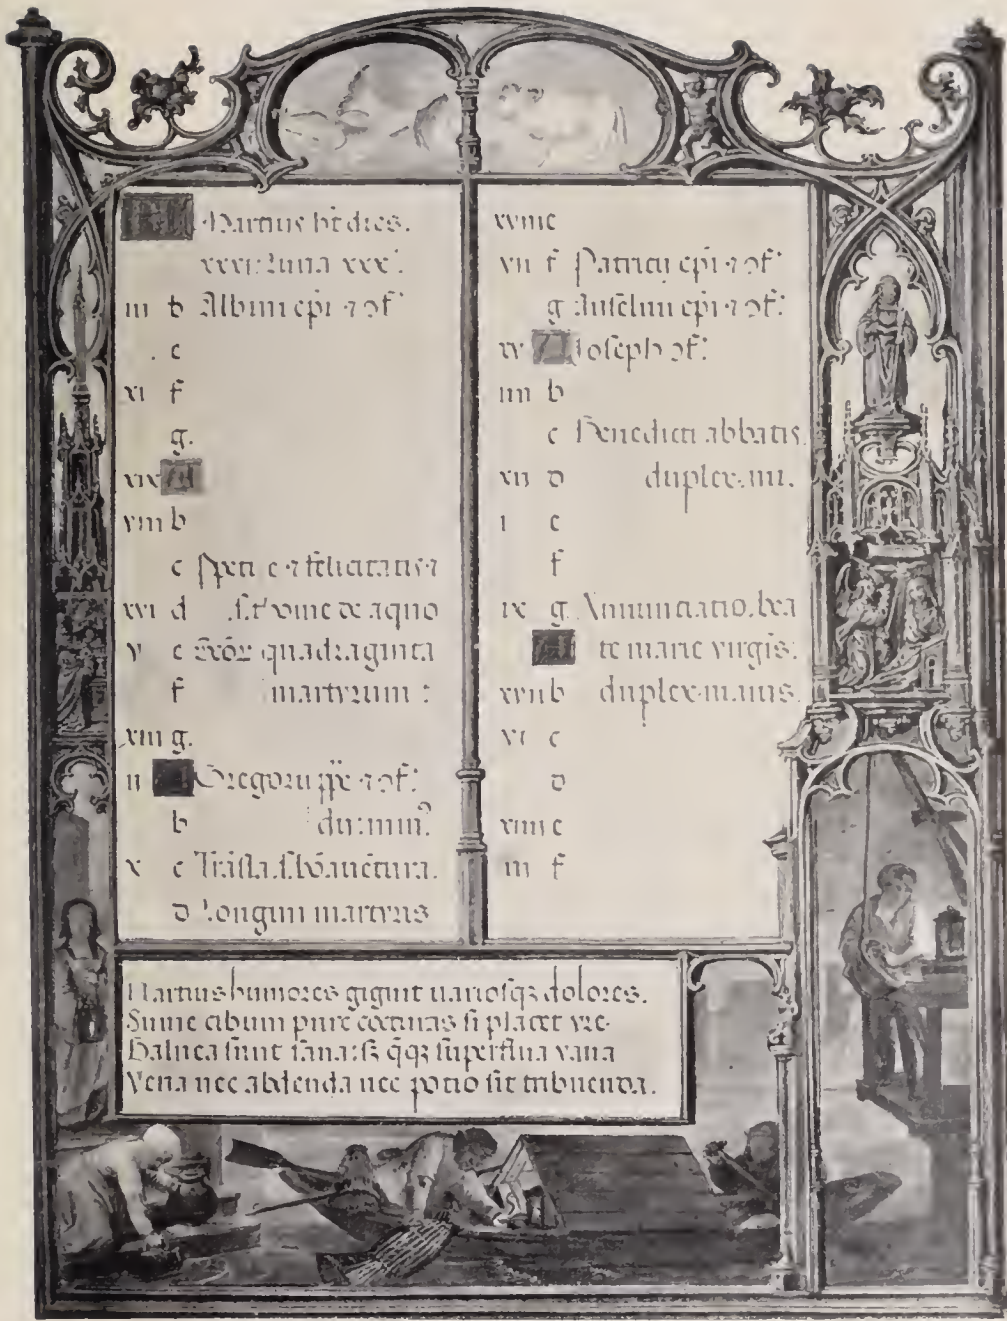 KL Martius ht dies.
xxxi: Luna xxx:
iii d Albini epi ⁊ ɔf:
e
xi f
g.
xix A
viii b
c Ppetue ⁊ felicitatis ⁊
xvi d s. t. de aquo
v e quadraginta
f martyrum :
xiii g.
ii A Gregorii pp ⁊ ɔf:
b du: min?
x c
d Longini martyris
xviii e
vii f Patricii epi ⁊ ɔf:
g Anselmi epi ⁊ ɔf:
xv A Ioseph ɔf:
iiii b
c Benedicti abbatis.
xii d duplex . mi.
i e
f
ix g Annunciatio . bea
A te marie virgis:
xvii b duplex . maius.
vi c
d
xiiii e
iii f
Martius humores gignit uariosq; dolores.
Sume cibum pure cocturas si placet vre.
Balnea sunt sana: sz q̄q; superflua vana
Vena nec abdenda nec potio sit tribuenda.